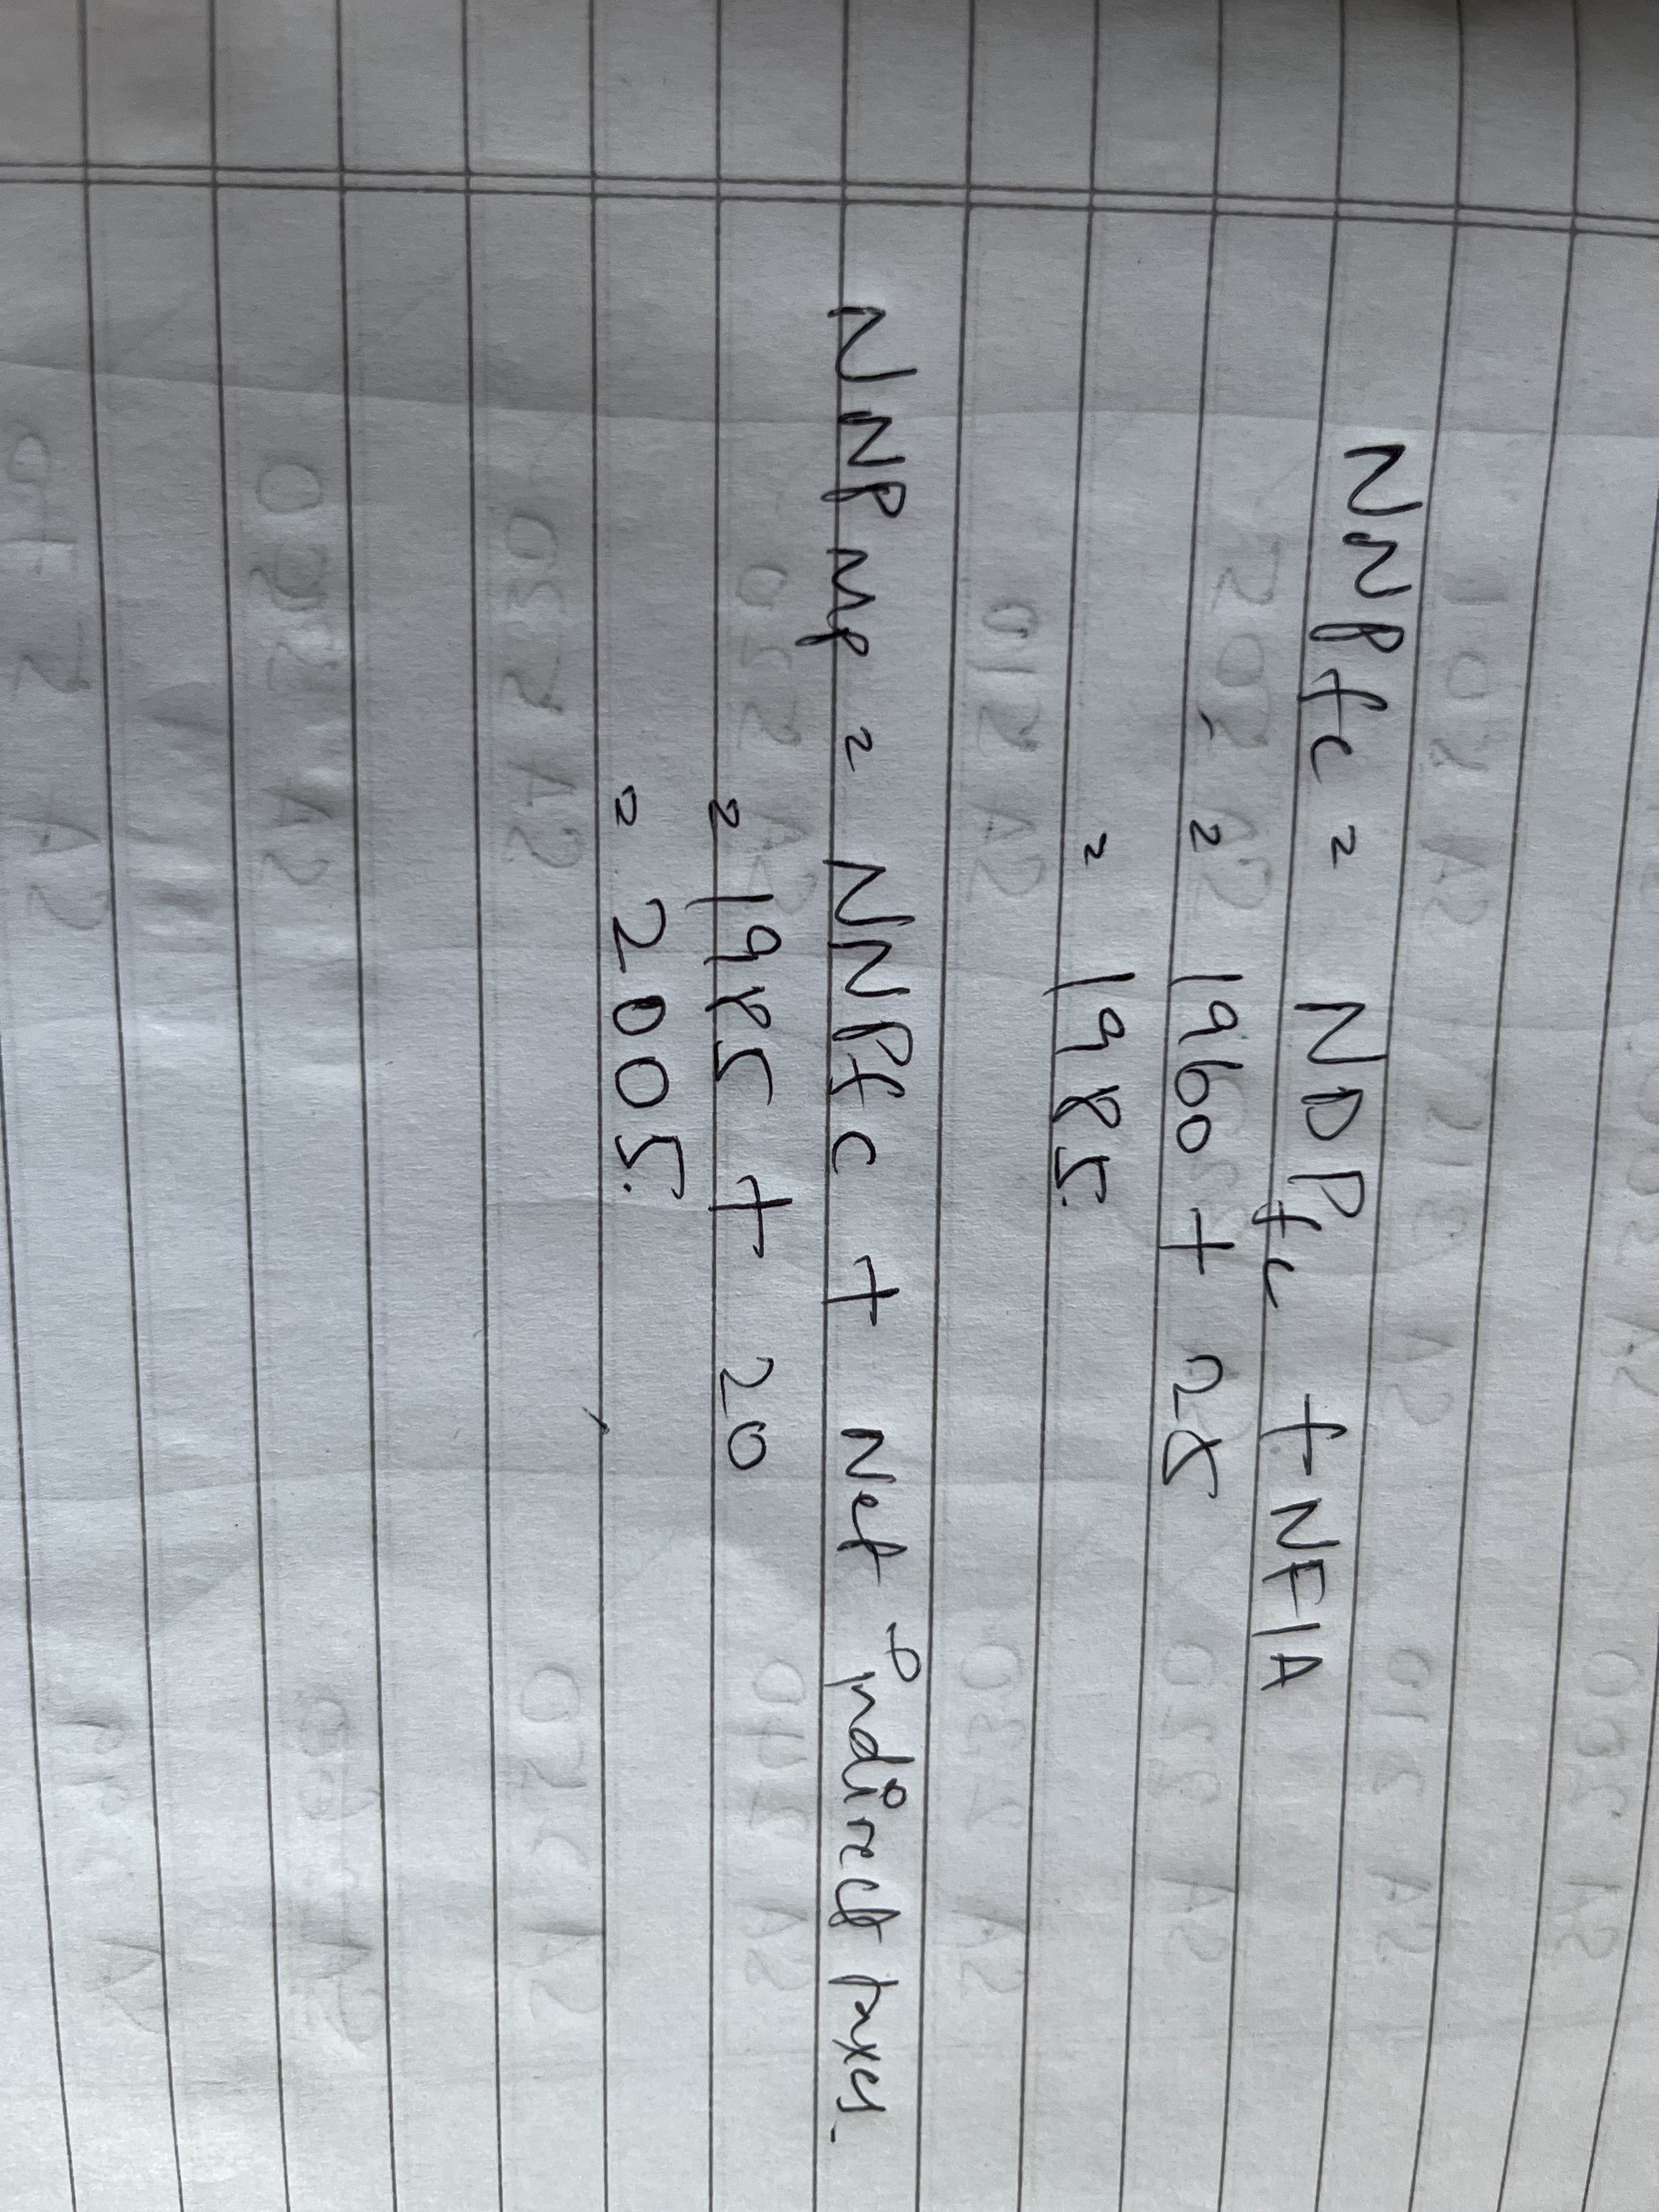 NNPfc = NDPfc + NFIA
= 1960 + 25
= 1985.
NNPmp = NNPfc + Net indirect taxes.
= 1985 + 20
= 2005.